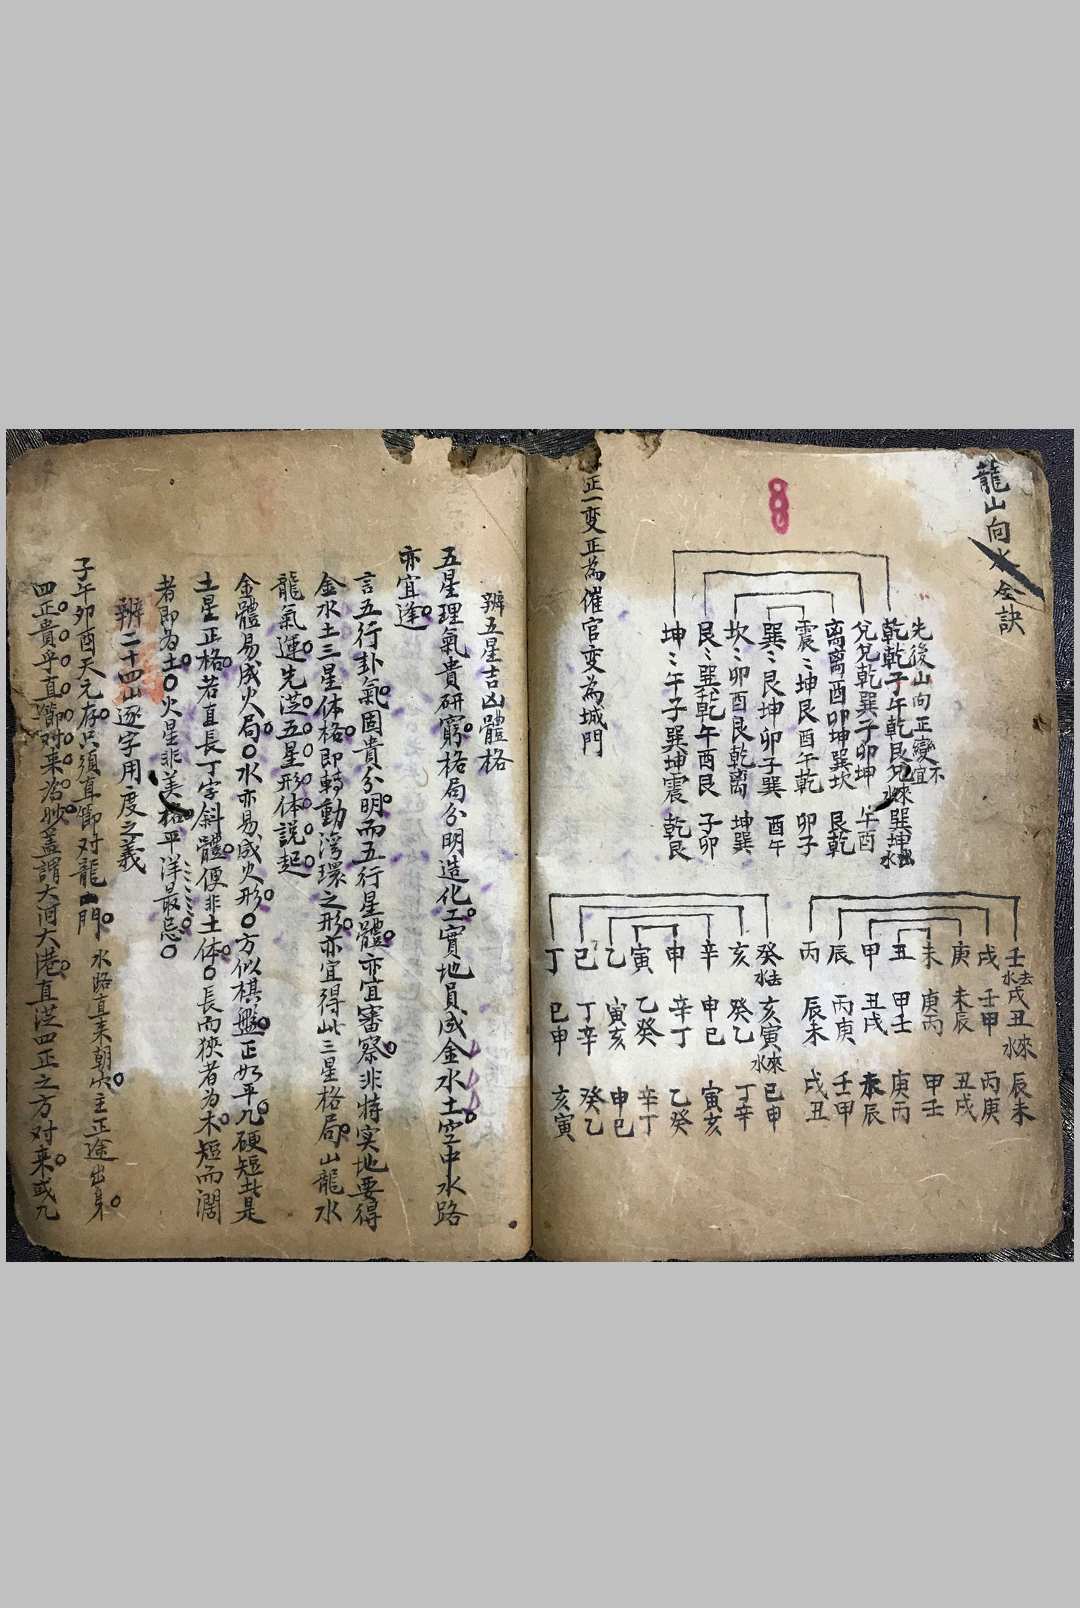 龍山向水全訣
先後山向正變不宜
乾乾子午乾艮兌來水巽坤出水
兌兌乾巽子卯坤 午酉
离离酉卯坤巽坎 艮乾
震〻坤艮酉午乾 卯子
巽〻艮坤卯子巽 酉午
坎〻卯酉艮乾离 坤巽
艮〻巽乾午酉艮 子卯
坤〻午子巽坤震 乾艮
正一变正為催官变為城門
壬水去戌丑水來辰未
戌壬甲丙庚
庚未辰丑戌
未庚丙甲壬
丑甲壬庚丙
甲丑戌未辰
辰丙庚壬甲
丙辰未戌丑
癸水去亥寅水來巳申
亥癸乙丁辛
辛申巳寅亥
申辛丁乙癸
寅乙癸辛丁
乙寅亥申巳
巳丁辛癸乙
丁巳申亥寅
辨五星吉凶體格
五星理氣貴研窮格局分明造化工實地員成金水土空中水路
亦宜逢
言五行卦氣固貴分明而五行星體亦宜審察非特实地要得
金水土三星体格即轉動湾環之形亦宜得此三星格局山龍水
龍氣運先从五星形体説起
金體易成火局水亦易成火形方似棋盤正如平几硬短此是
土星正格若直長丁字斜體便非土体長而狹者為木短而濶
者即為土火星非美格平洋最忌
辨二十四山逐字用度之義
子午卯酉天元存只須直節对龍門 水路直来朝穴主正途出身
四正貴乎直節对来為妙蓋謂大河大港直从四正之方对来或九